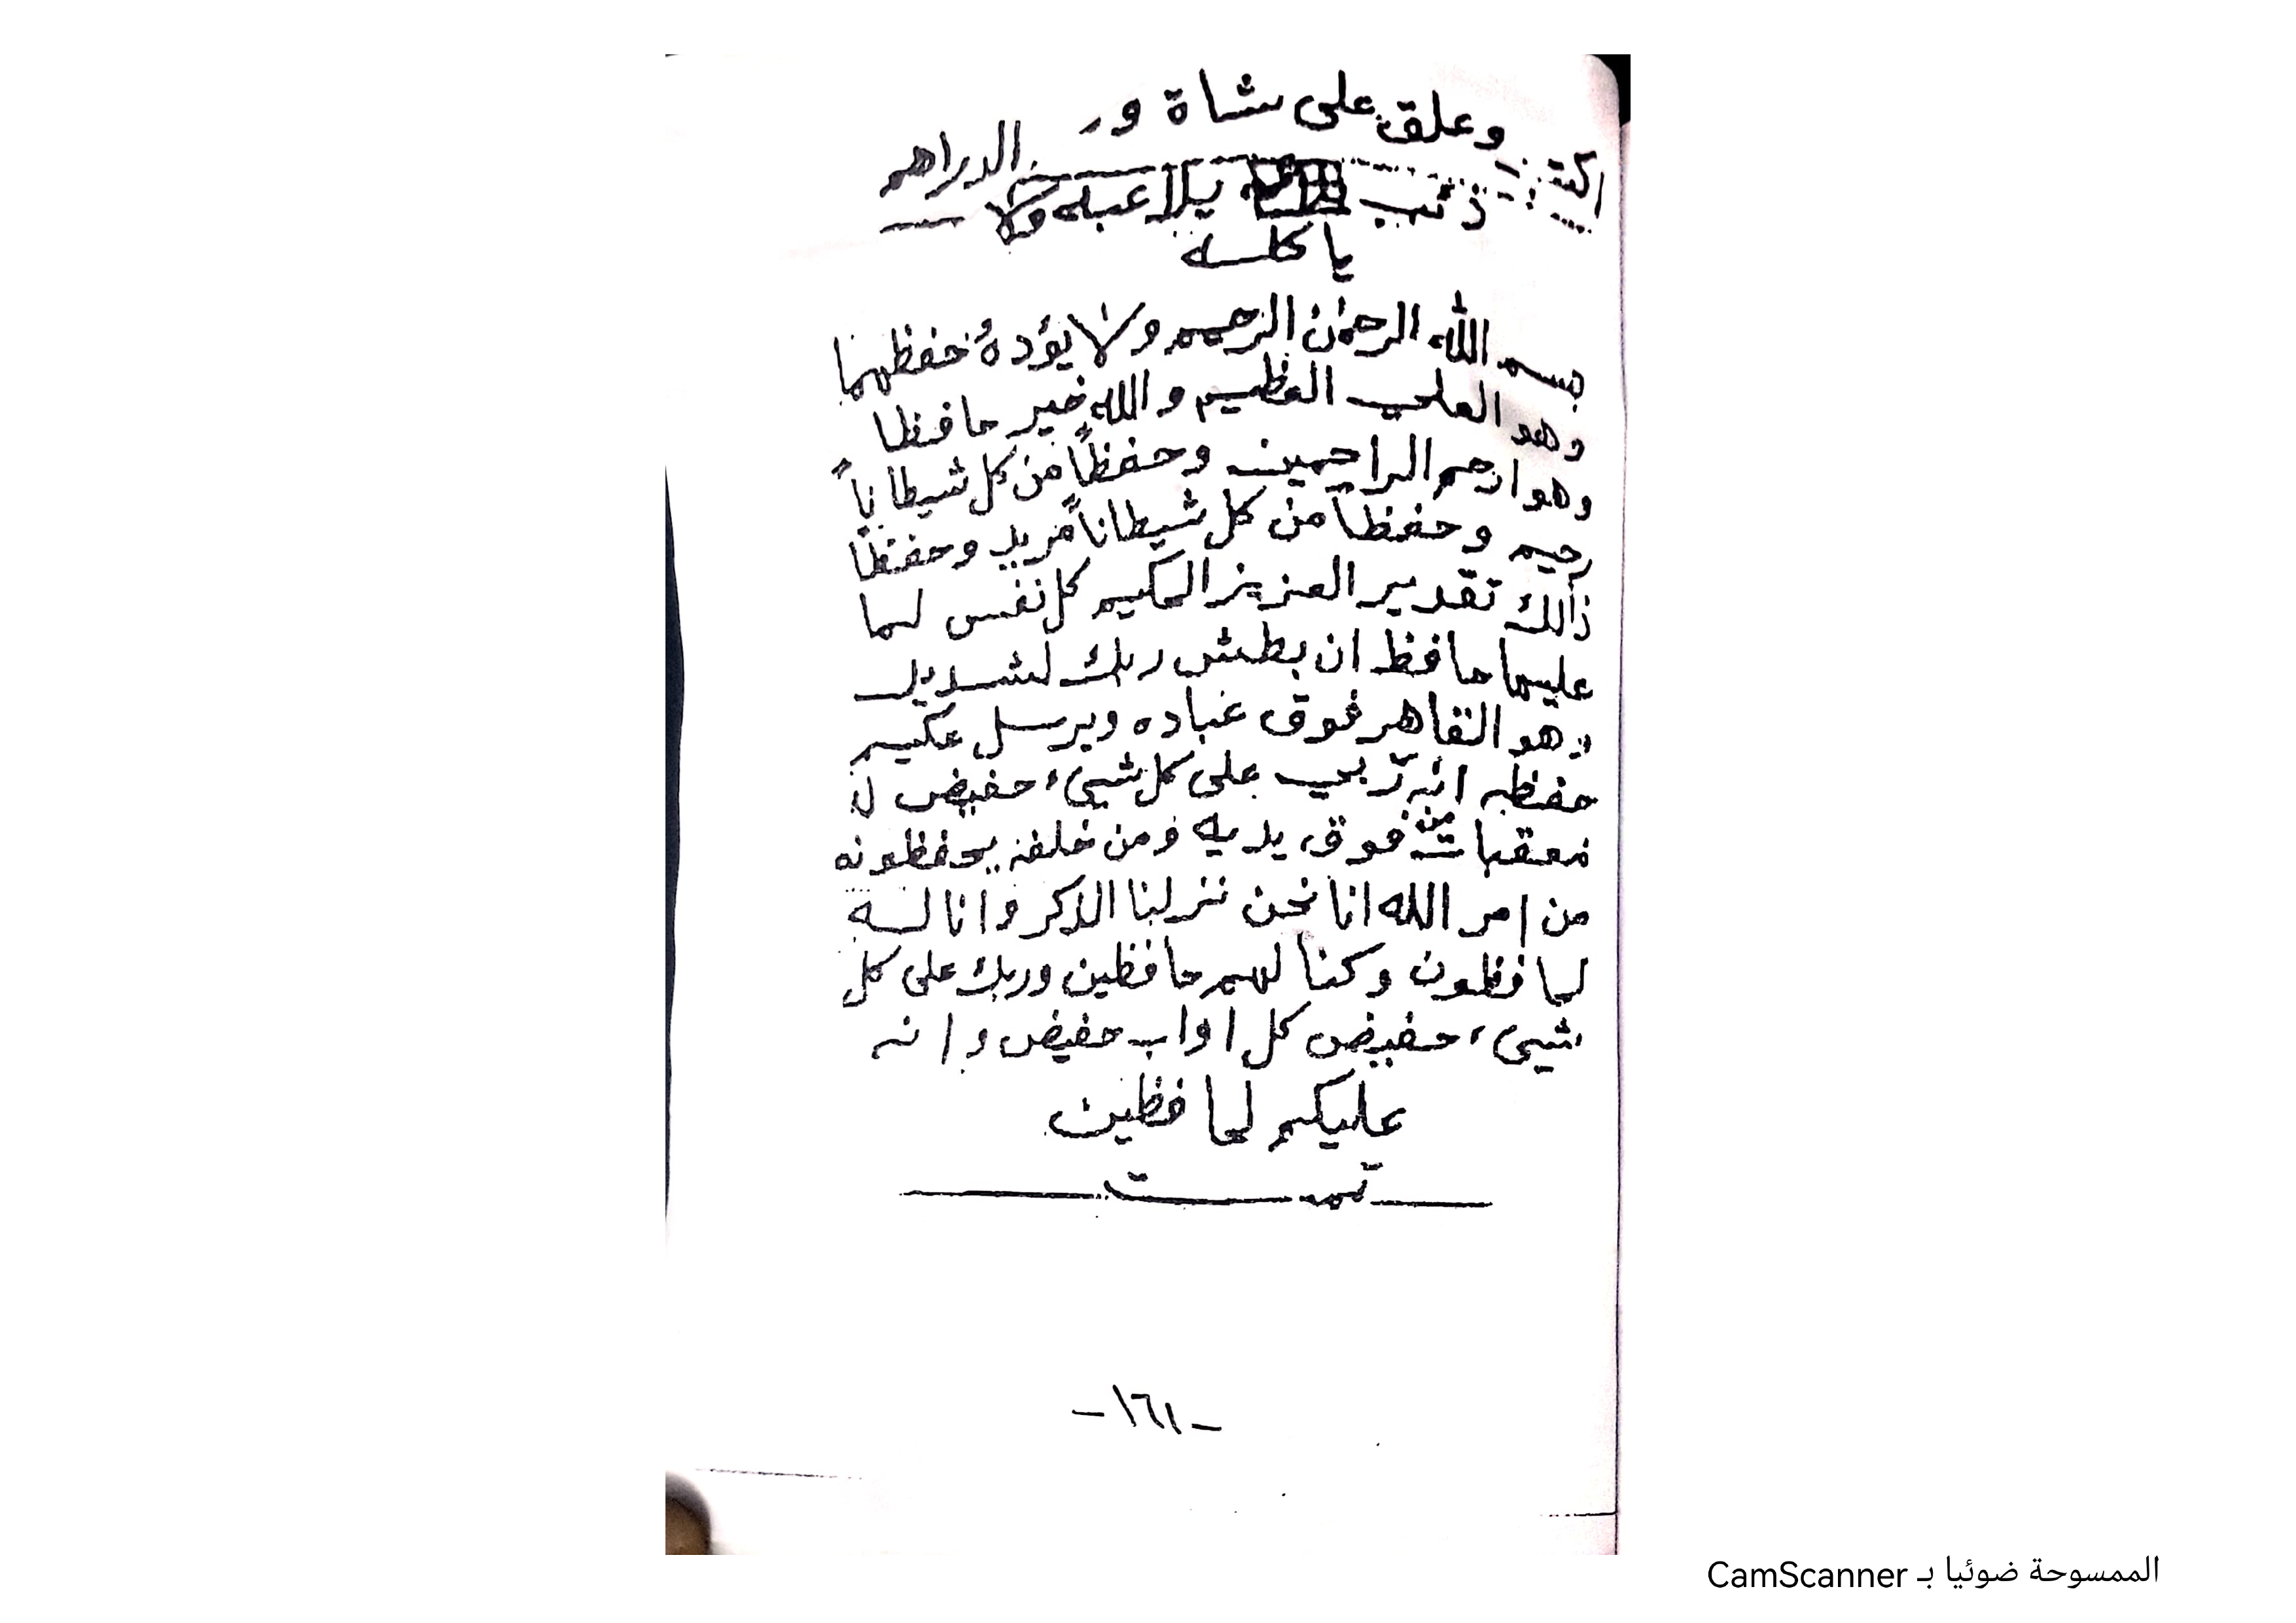 اكتب وعلق على شاة ور الدراهم
ذئب يلاعبه ولا
ياكله
بسم الله الرحمن الرحيم ولا يؤدهُ حفظهما
وهو العلي العظيم والله خير حافظا
وهو ارحم الراحمين وحفظاً من كل شيطاناً
رجيم وحفظاً من كل شيطاناً مريد وحفظاً
ذالك تقدير العزيز الحكيم كل نفس لما
عليها حافظ ان بطش ربك لشديد
وهو القاهر فوق عباده ويرسل عكيم
حفظه انه رّبي على كل شيىء حفيض ل
معقبات من فوق يديه ومن خلفه يحفظونه
من امر الله انا نحن نزلنا الذكر وانا له
لحافظون وكنا لهم حافظين وربك على كل
شيىء حفيض كل اواب حفيض وانه
عليكم لحافظين
تمت
-١٦١-
الممسوحة ضوئيا بـ CamScanner